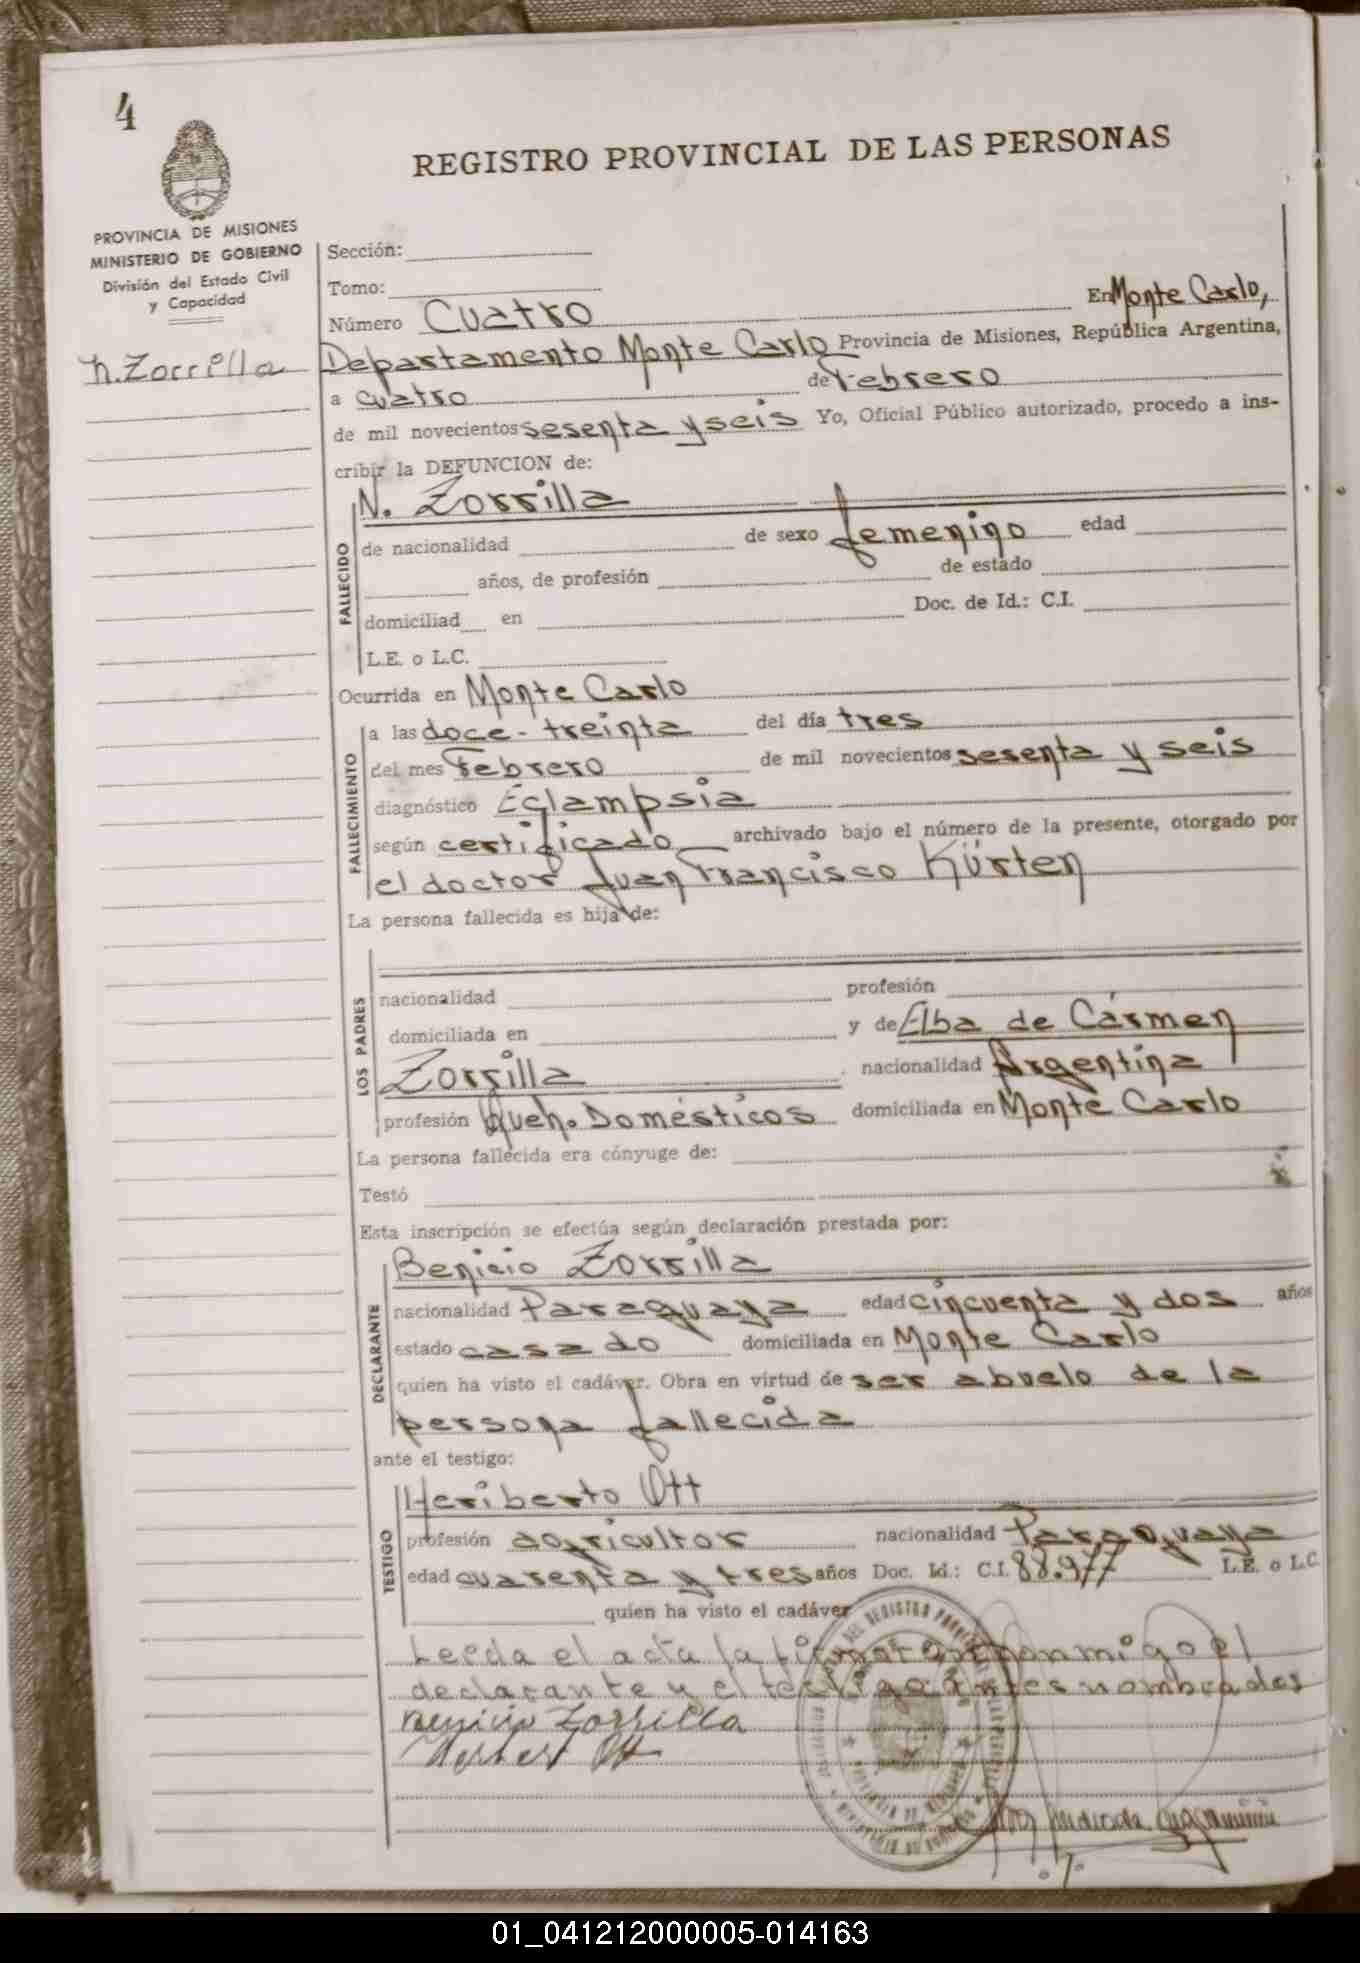 4
REGISTRO PROVINCIAL DE LAS PERSONAS
PROVINCIA DE MISIONES
MINISTERIO DE GOBIERNO
División del Estado Civil
y Capacidad
N. Zorrilla
Sección:
Tomo:
Número Cuatro En Monte Carlo,
Departamento Monte Carlo Provincia de Misiones, República Argentina,
a cuatro de Febrero
de mil novecientos sesenta y seis Yo, Oficial Público autorizado, procedo a ins-
cribir la DEFUNCION de:
N. Zorrilla
FALLECIDO
de nacionalidad de sexo femenino edad
años, de profesión de estado
domiciliad en Doc. de Id.: C.I.
L.E. o L.C.
Ocurrida en Monte Carlo
FALLECIMIENTO
a las doce-treinta del día tres
del mes Febrero de mil novecientos sesenta y seis
diagnóstico Eclampsia
según certificado archivado bajo el número de la presente, otorgado por
el doctor Juan Francisco Kürten
La persona fallecida es hija de:
LOS PADRES
nacionalidad profesión
domiciliada en y de Elba de Cármen
Zorrilla nacionalidad Argentina
profesión Queh. Domésticos domiciliada en Monte Carlo
La persona fallecida era cónyuge de:
Testó
Esta inscripción se efectúa según declaración prestada por:
Benicio Zorrilla
DECLARANTE
nacionalidad Paraguaya edad cincuenta y dos años
estado casado domiciliada en Monte Carlo
quien ha visto el cadáver. Obra en virtud de ser abuelo de la
persona fallecida
ante el testigo:
Heriberto Ott
TESTIGO
profesión agricultor nacionalidad Paraguaya
edad cuarenta y tres años Doc. Id.: C.I. 88.977 L.E. o L.C.
quien ha visto el cadáver
Leeda el acta la firmaron conmigo el
declarante y el testigo antes nombrados
Benicio Zorrilla
Herbert Ott
01_041212000005-014163